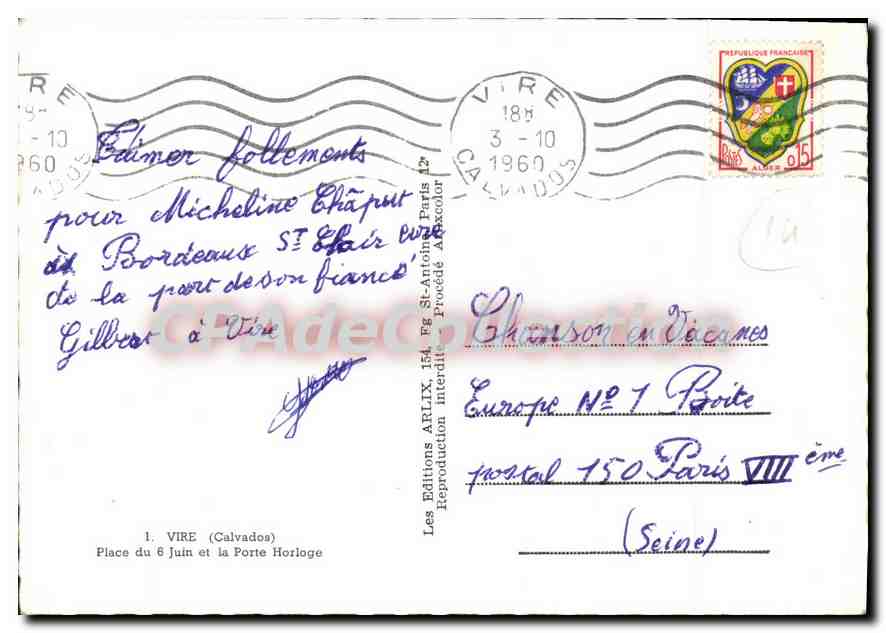 VIRE
18H
3-10
1960
CALVADOS
RÉPUBLIQUE FRANÇAISE
Postes
0,15
ALGER
T'aimer follements
pour Micheline Châput
à Bordeaux St Clair
de la part de son fiancé
Gilbert à Vire
Chanson en Vacanes
Europe N° 1 Boite
postal 150 Paris VIII ème
(Seine)
Les Editions ARLIX, 154, Fg St-Antoine, Paris 12e
Reproduction interdite Procédé
1. VIRE (Calvados)
Place du 6 Juin et la Porte Horloge
CPAdeCollection